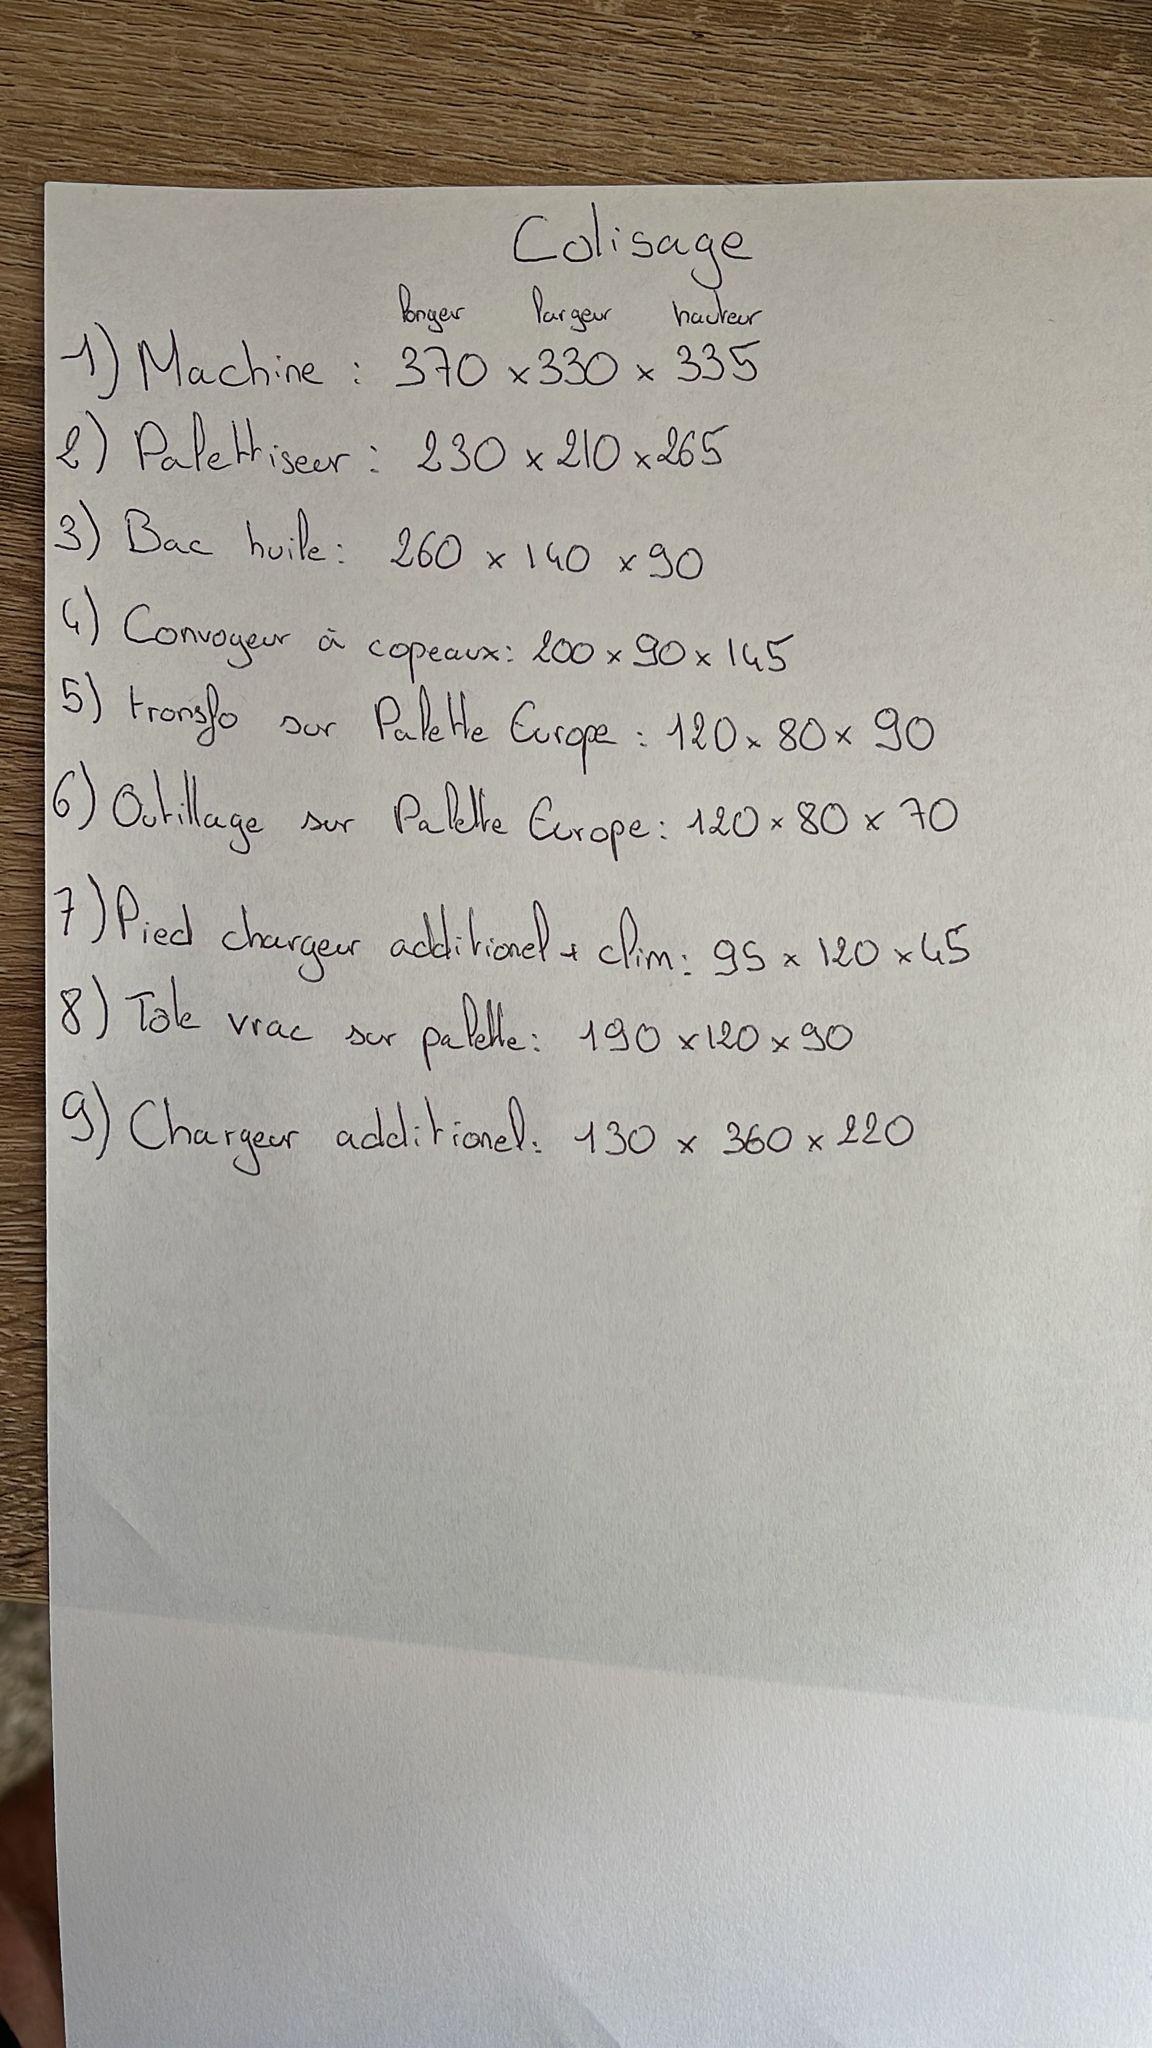 Colisage
longeur largeur hauteur
1) Machine : 370 x 330 x 335
2) Palettiseur : 230 x 210 x 265
3) Bac huile : 260 x 140 x 90
4) Convoyeur à copeaux : 200 x 90 x 145
5) transfo sur Palette Europe : 120 x 80 x 90
6) Outillage sur Palette Europe : 120 x 80 x 70
7) Pied chargeur additionel + clim : 95 x 120 x 45
8) Tole vrac sur palette : 190 x 120 x 90
9) Chargeur additionel : 130 x 360 x 220